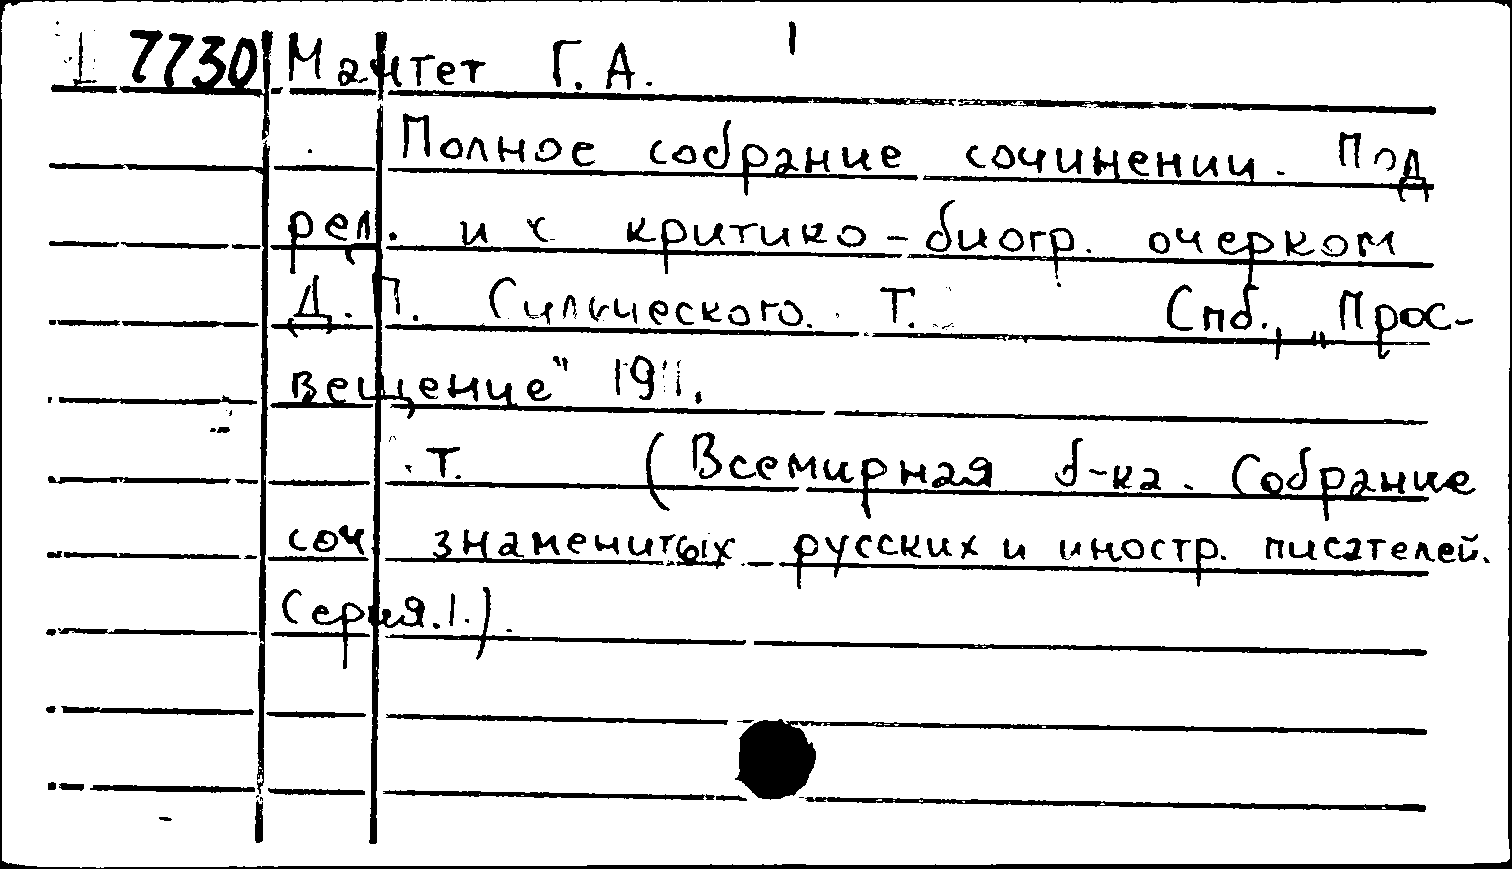 I 7730 Мачтет Г. А.
Полное собрание сочинении. Под
ред. и с критико-биогр. очерком
Д. П. Сильчевского. Т. Спб., „Прос-
вещение" 1911.
Т. (Всемирная б-ка. Собрание
соч знаменитых русских и иностр. писателей.
Серия. I.).